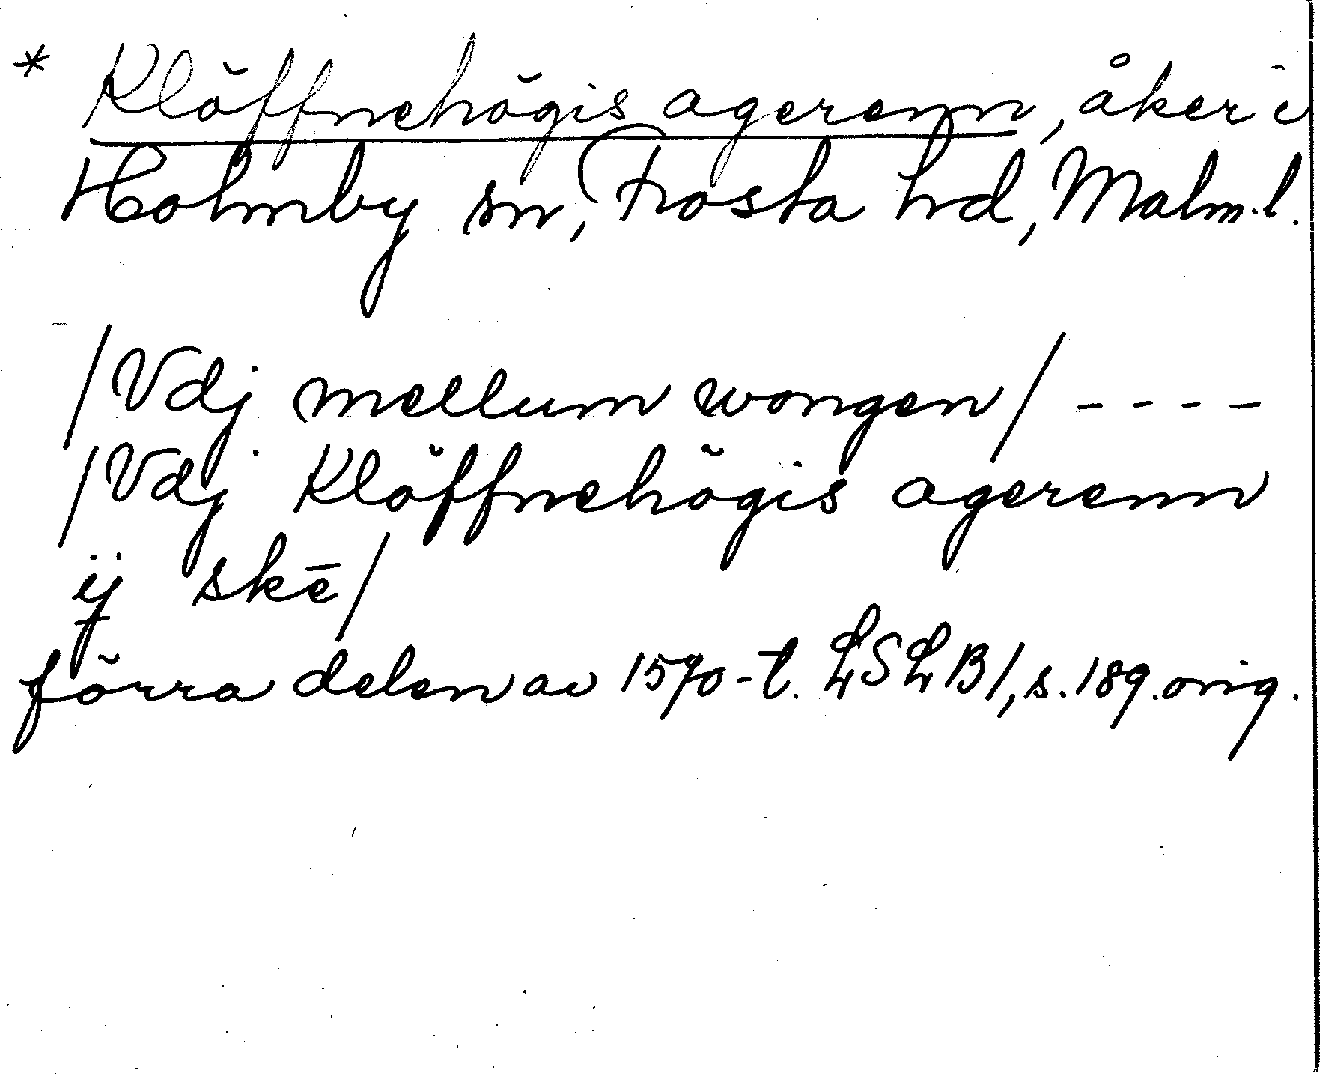 * Klöffnehögis agerenn, åker i
Holmby sn, Frosta hd, Malm.l.
/Vdj mellum wongen/ - - - -
/Vdj Klöffnehögis agerenn
ij skē/
förra delen av 1570-t. LSLB1, s. 189. orig.